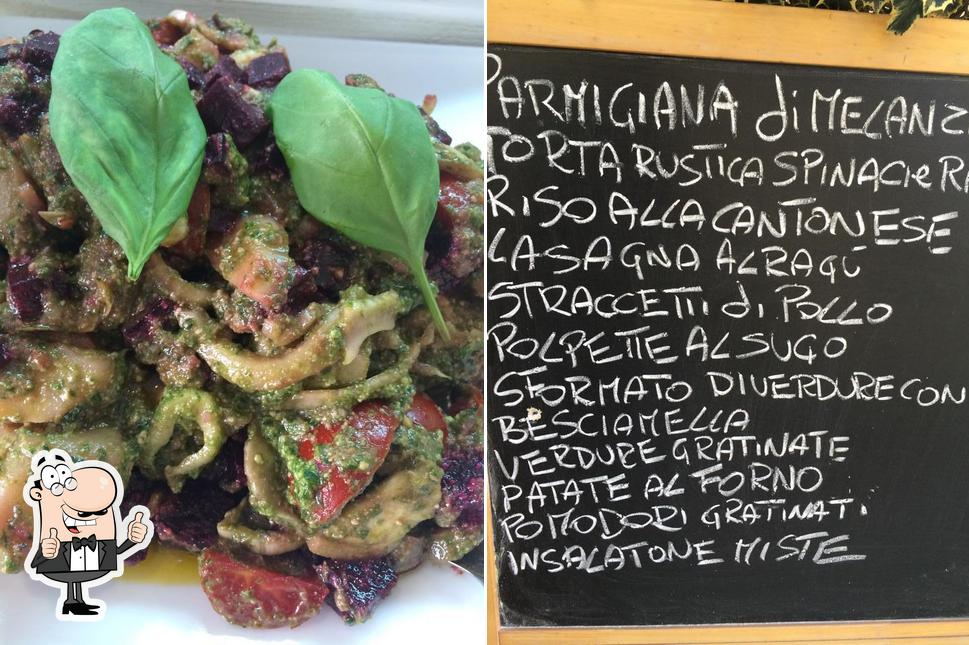 PARMIGIANA di MELANZ
TORTA RUSTICA SPINACI e R
RISO ALLA CANTONESE
LASAGNA AL RAGÙ
STRACCETTI di POLLO
POLPETTE AL SUGO
SFORMATO DI VERDURE CON
BESCIAMELLA
VERDURE GRATINATE
PATATE AL FORNO
POMODORI GRATINATI
INSALATONE MISTE